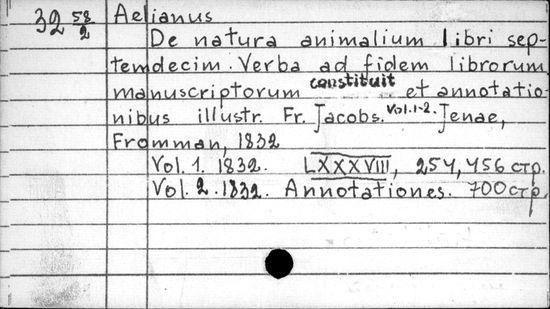 32 58/2 Aelianus
De natura animalium libri sep-
temdecim. Verba ad fidem librorum
manuscriptorum constituit et annotatio-
nibus illustr. Fr. Jacobs. Vol. 1-2. Jenae,
Fromman, 1832
Vol. 1. 1832. LXXXVIII, 254, 456 стр.
Vol. 2. 1832. Annotationes. 700 стр.